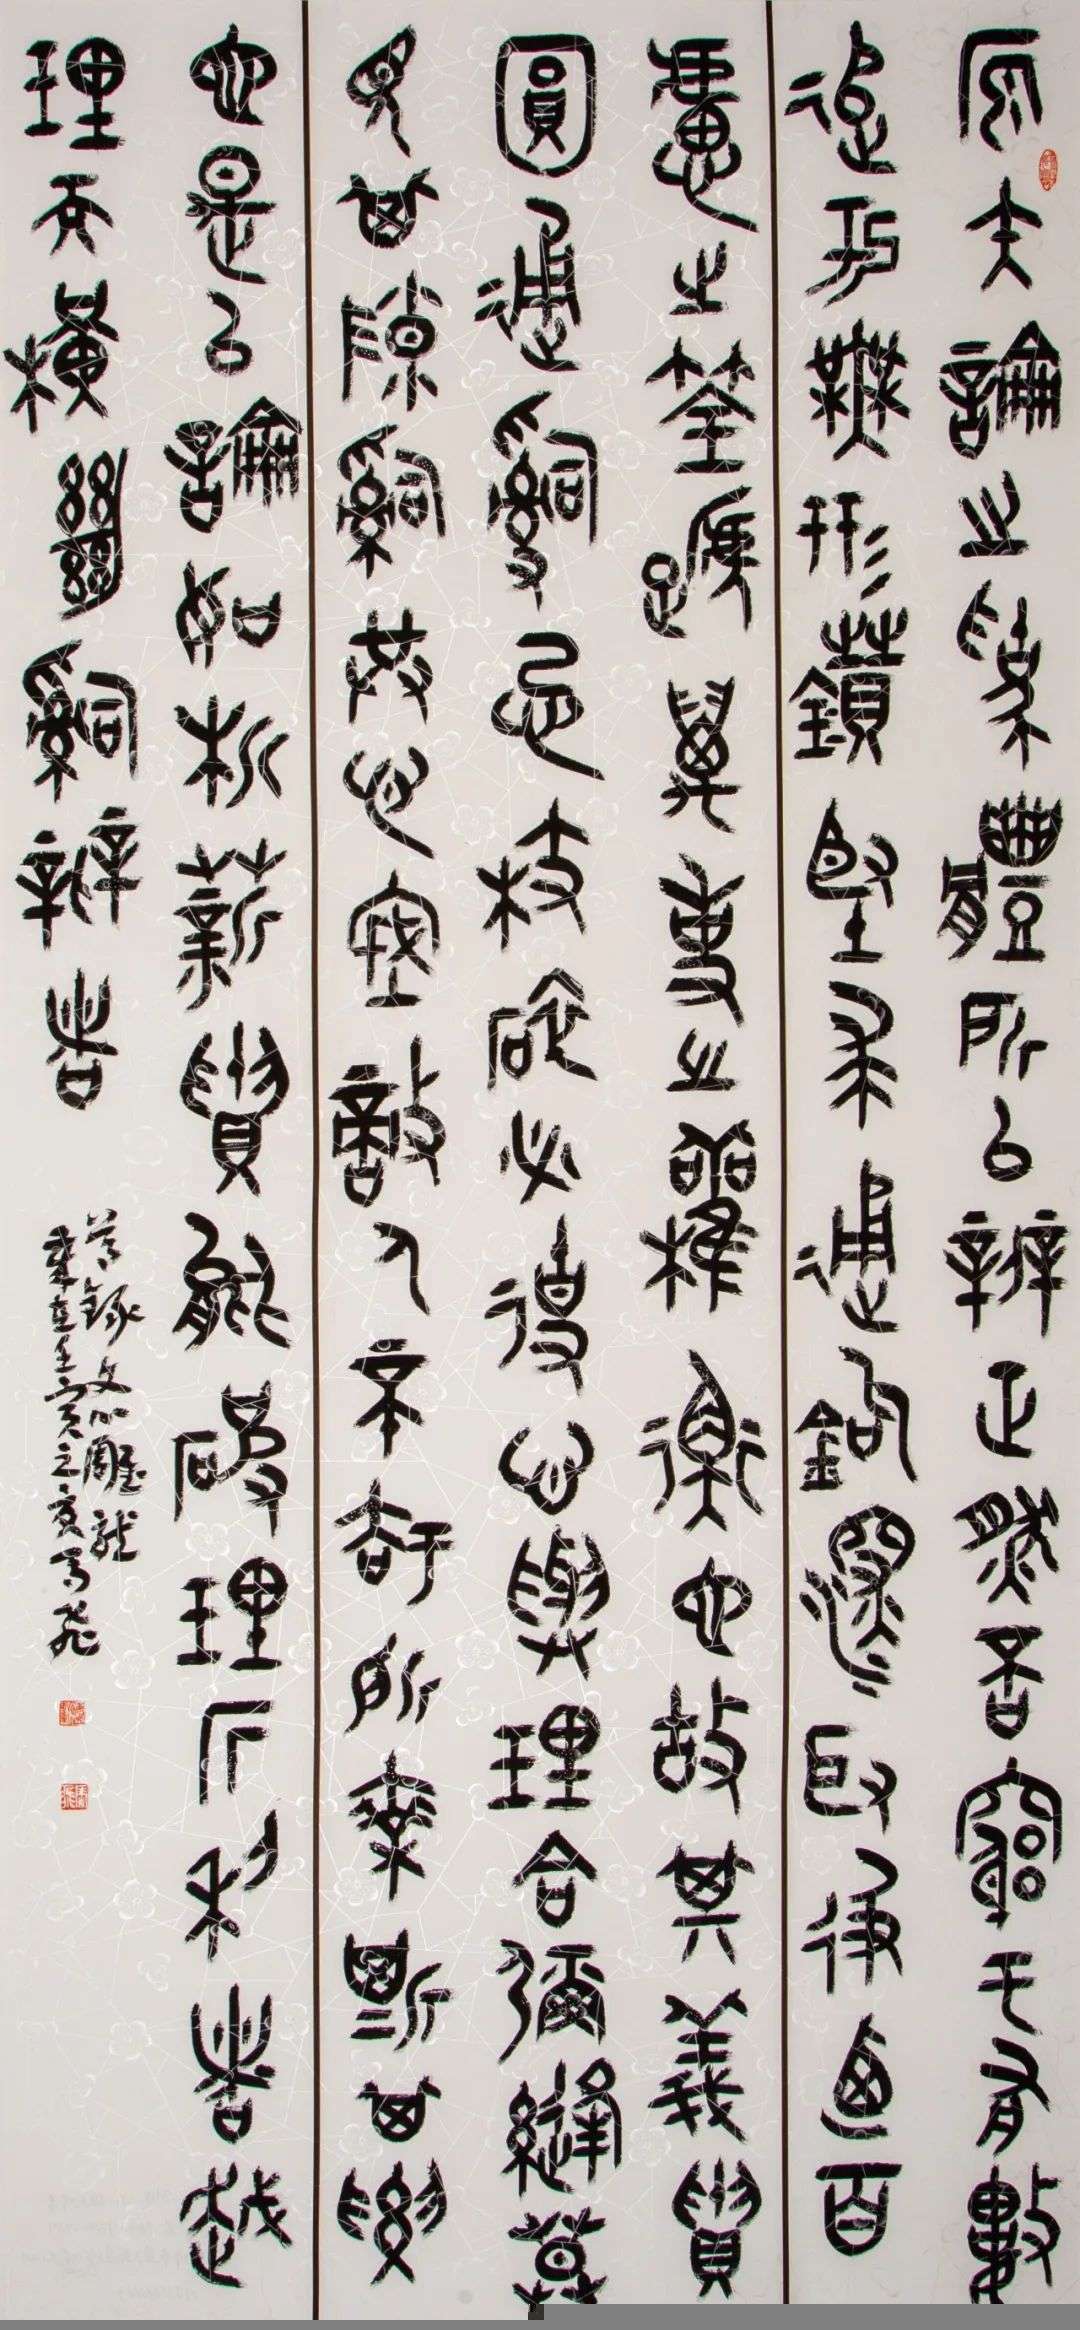 原夫論之為體所以辨正然否窮于有數
追於無形鑽堅求通鉤深取極迺百
慮之筌蹄萬事之權衡也故其義貴
圓通辭忌枝碎必使心與理合彌縫莫
見其隙辭共心密敵人不知所乘斯其要
也是以論如析薪貴能破理斤利者越
理而橫斷辭辨者
節錄文心雕龍